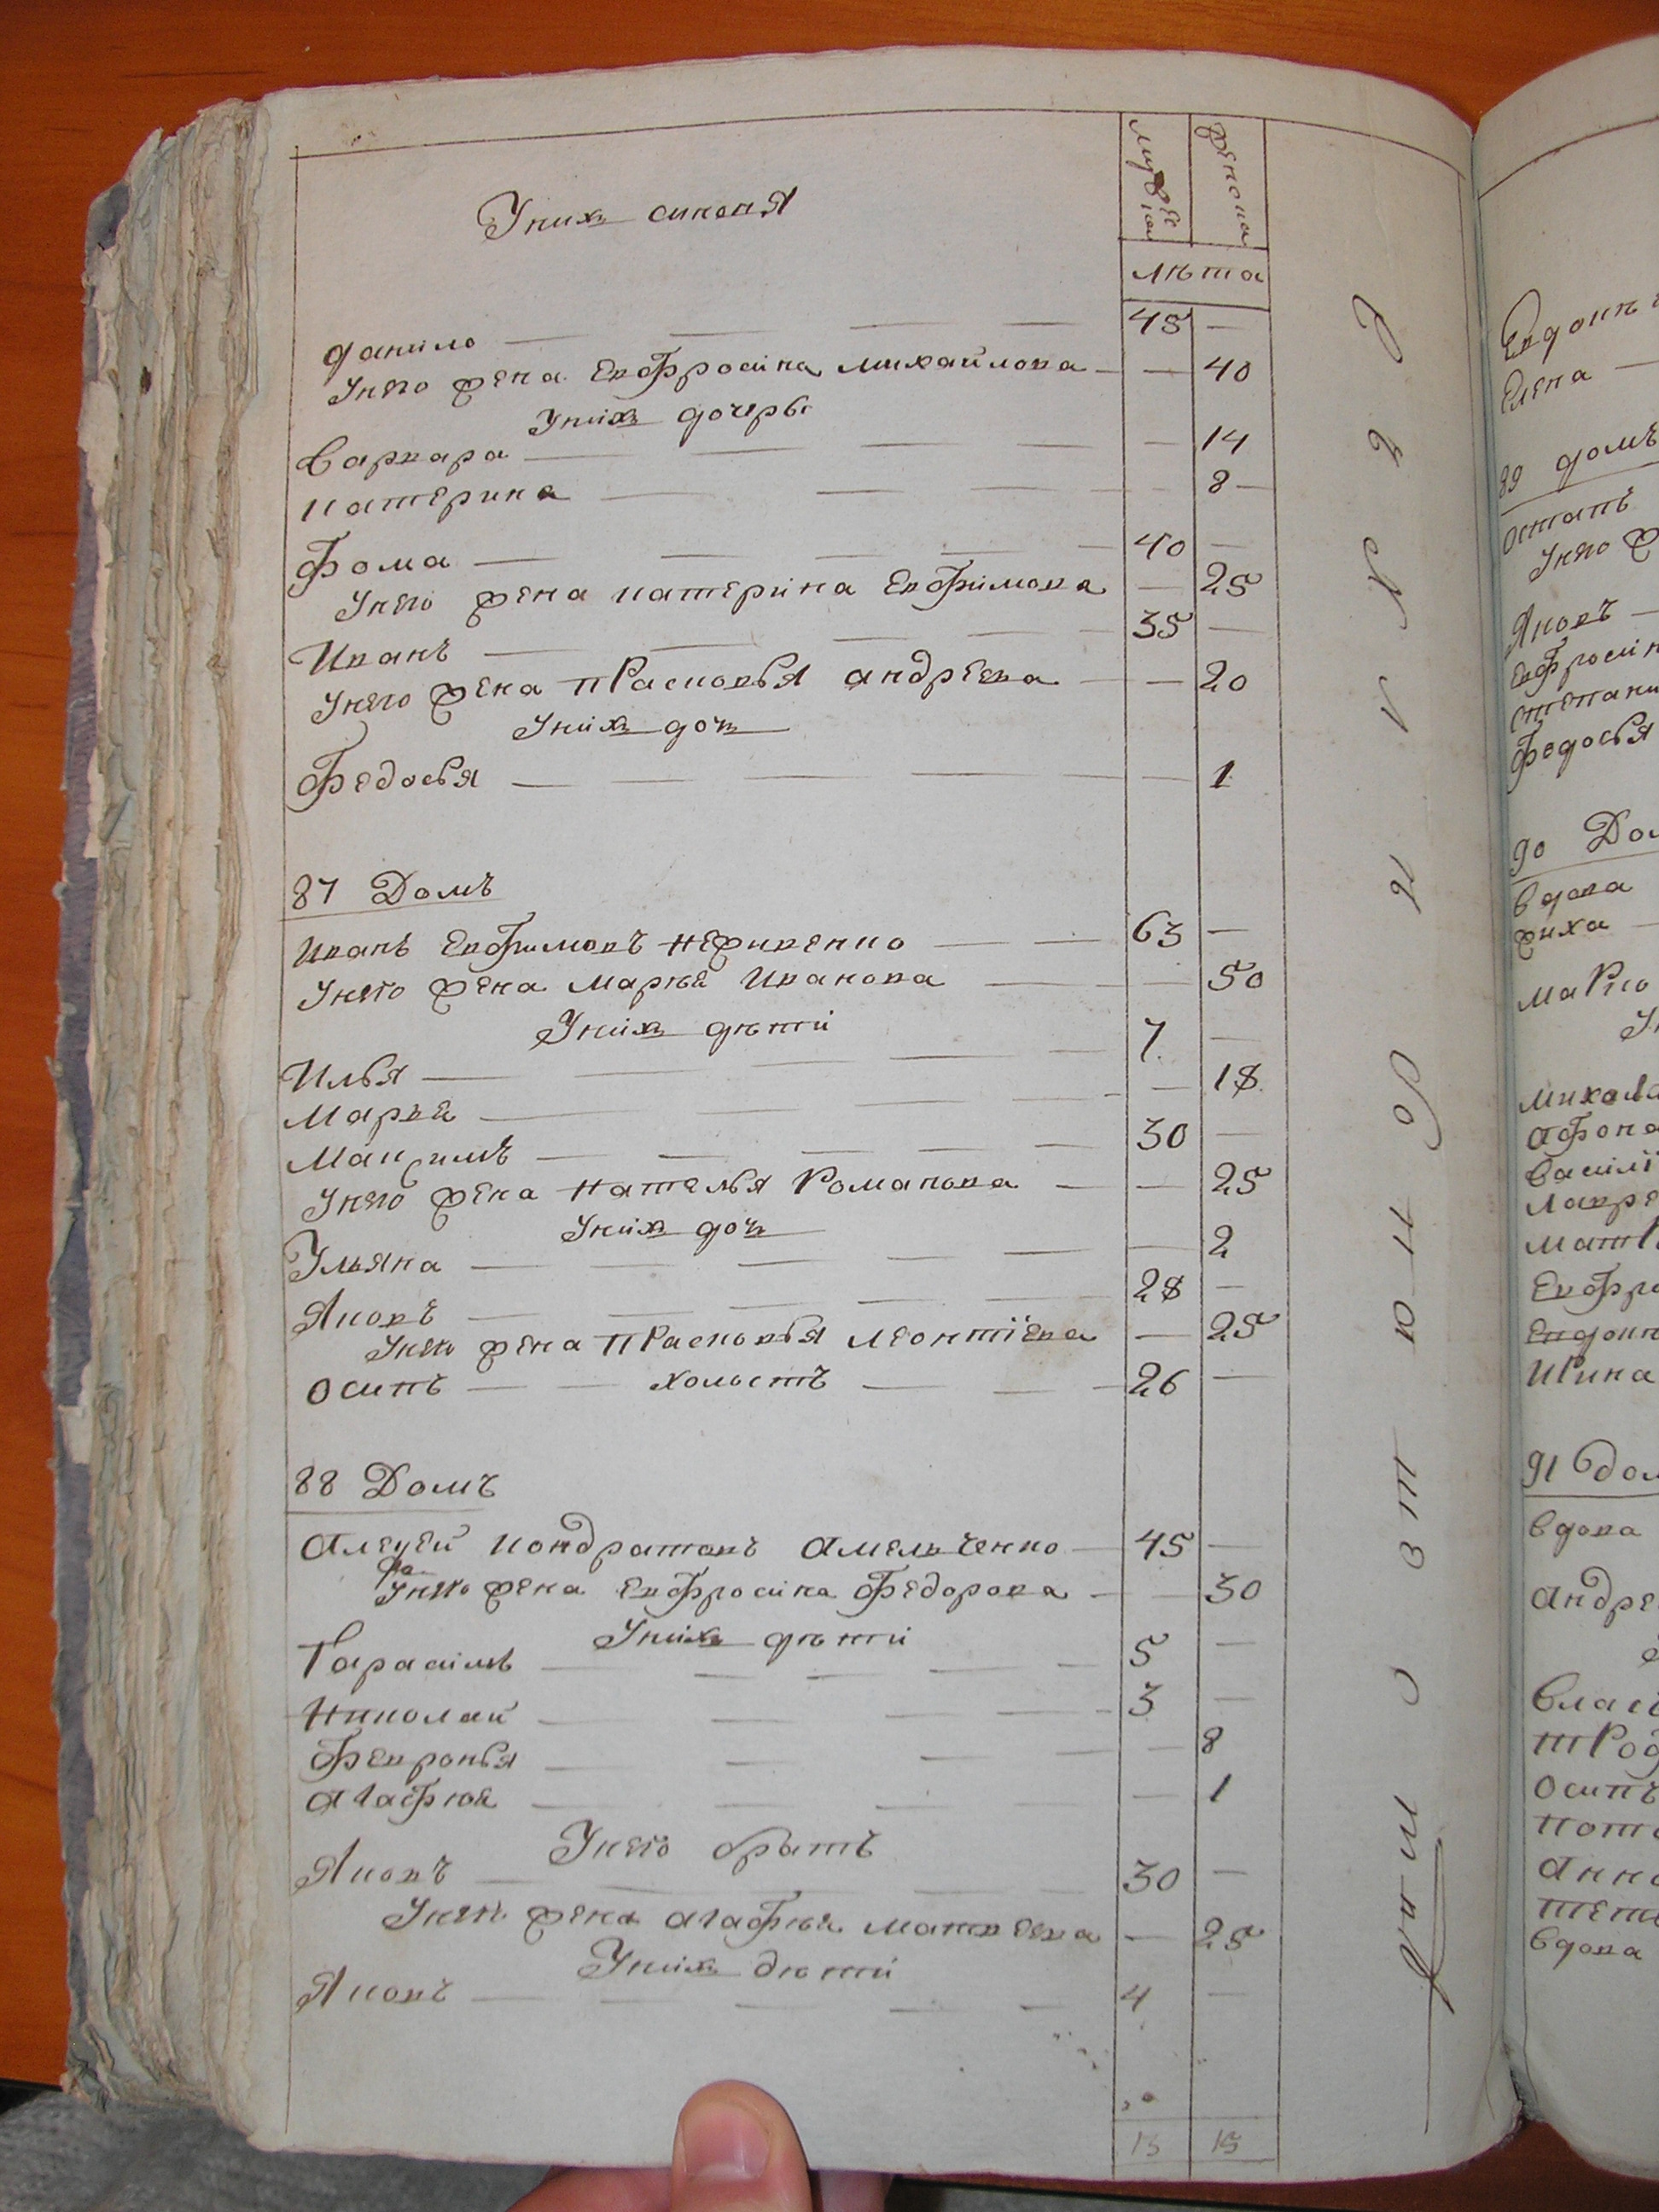 мужеска
женска
лѣта
Унихъ синовя
данило 45 —
Унего жена Евфросина михайлова — 40
Унихъ дочеры
Варвара — 14
катерина — 8
Фома 40 —
Унего жена катерина Евфимова — 25
Иванъ 35 —
Унего жена пРасковья андреева — 20
Унихъ доч
Федосья — 1
87 Домъ
Иванъ Евфимовъ неживенко 63 —
Унего жена Марѣя Иванова — 50
Унихъ дѣти
Илья 7 —
Марья — 18
Макъсимъ 30 —
Унего жена наталья Романова — 25
Унихъ доч
Ульяна — 2
Яковъ 28 —
Унего жена пРасковья леонтіева — 25
осипъ холостъ 26 —
88 Домъ
алеѯей кондратовъ амельченко 45 —
Унего жена евфросина Федорова — 30
Унихъ дѣти
Гарасимъ 5 —
николай 3 —
Февронья — 8
агафия — 1
Унего братъ
Яковъ 30 —
Унего жена агафия матвеева — 25
Унихъ дѣти
Яковъ 4 —
13 15
Евдоки
елена
89 домъ
остапъ
Унего ж
Яковъ
евфросин
степани
федосья
90 Дом
вдова
жиха
маРко
михайла
афона
василі
лавре
матР
евфро
евдоки
ирина
91 дом
вдова
андре
власъ
тРоф
осипъ
пота
анна
вдова